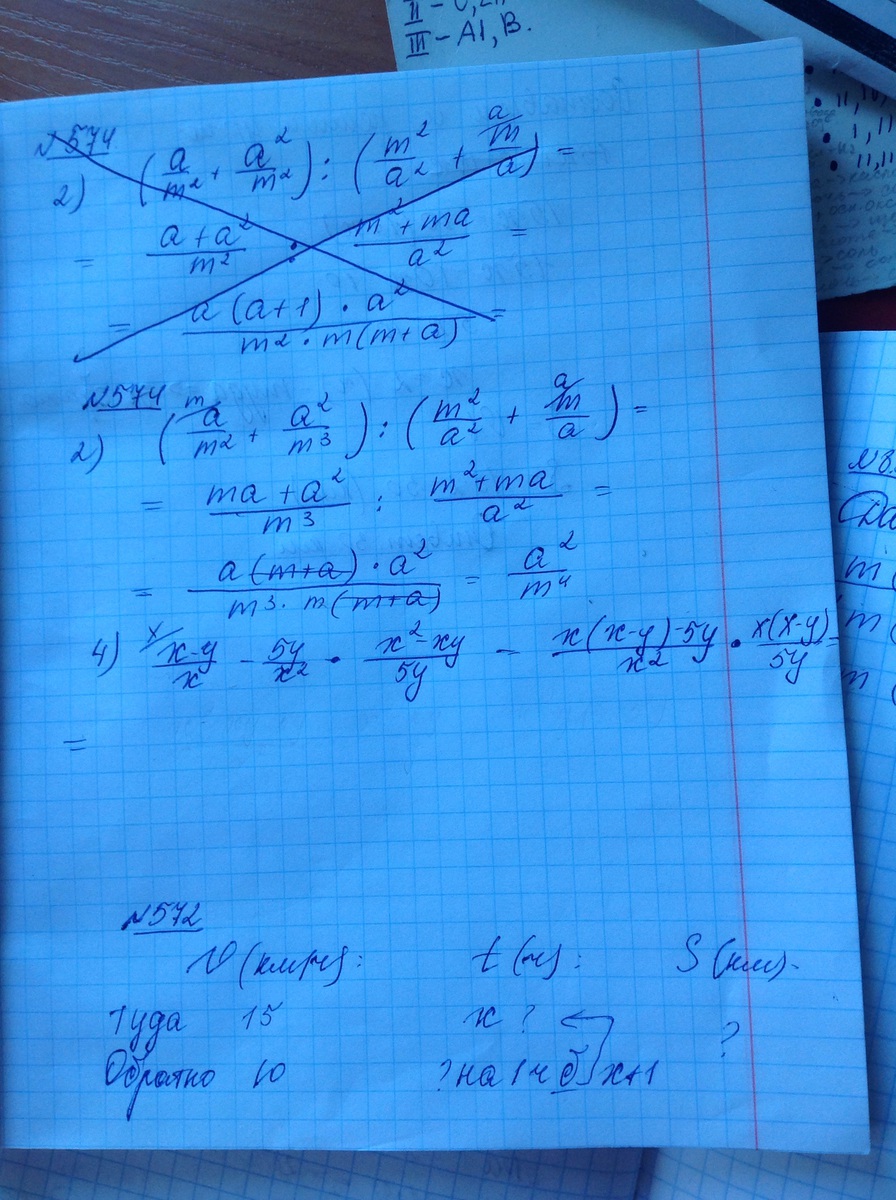 II - 0,2
III - A1, B.
№574
2) (a/m² + a²/m²) : (m²/a² + m/a) =
= (a + a²)/m² : (m² + ma)/a² =
= (a(a+1) · a²)/(m² · m(m+a)) =
№574
2) (a/m² + a²/m³) : (m²/a² + m/a) =
= (ma + a²)/m³ : (m² + ma)/a² =
= (a(m+a) · a²)/(m³ · m(m+a)) = a²/m⁴
4) (x-y)/x - 5y/x² · (x²-xy)/5y = (x(x-y)-5y)/x² · x(x-y)/5y =
=
№572
V (км/ч): t (ч): S (км).
Туда 15 x ? ?
Обратно 10 ? на 1 ч б x+1